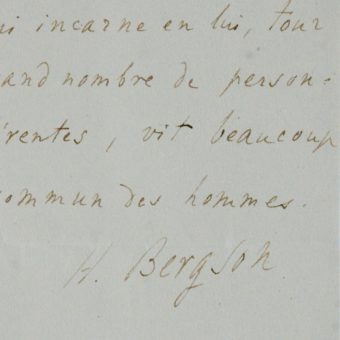 ui incarne en lui, tour
and nombre de person-
érentes, vit beaucoup
commun des hommes.
H. Bergson